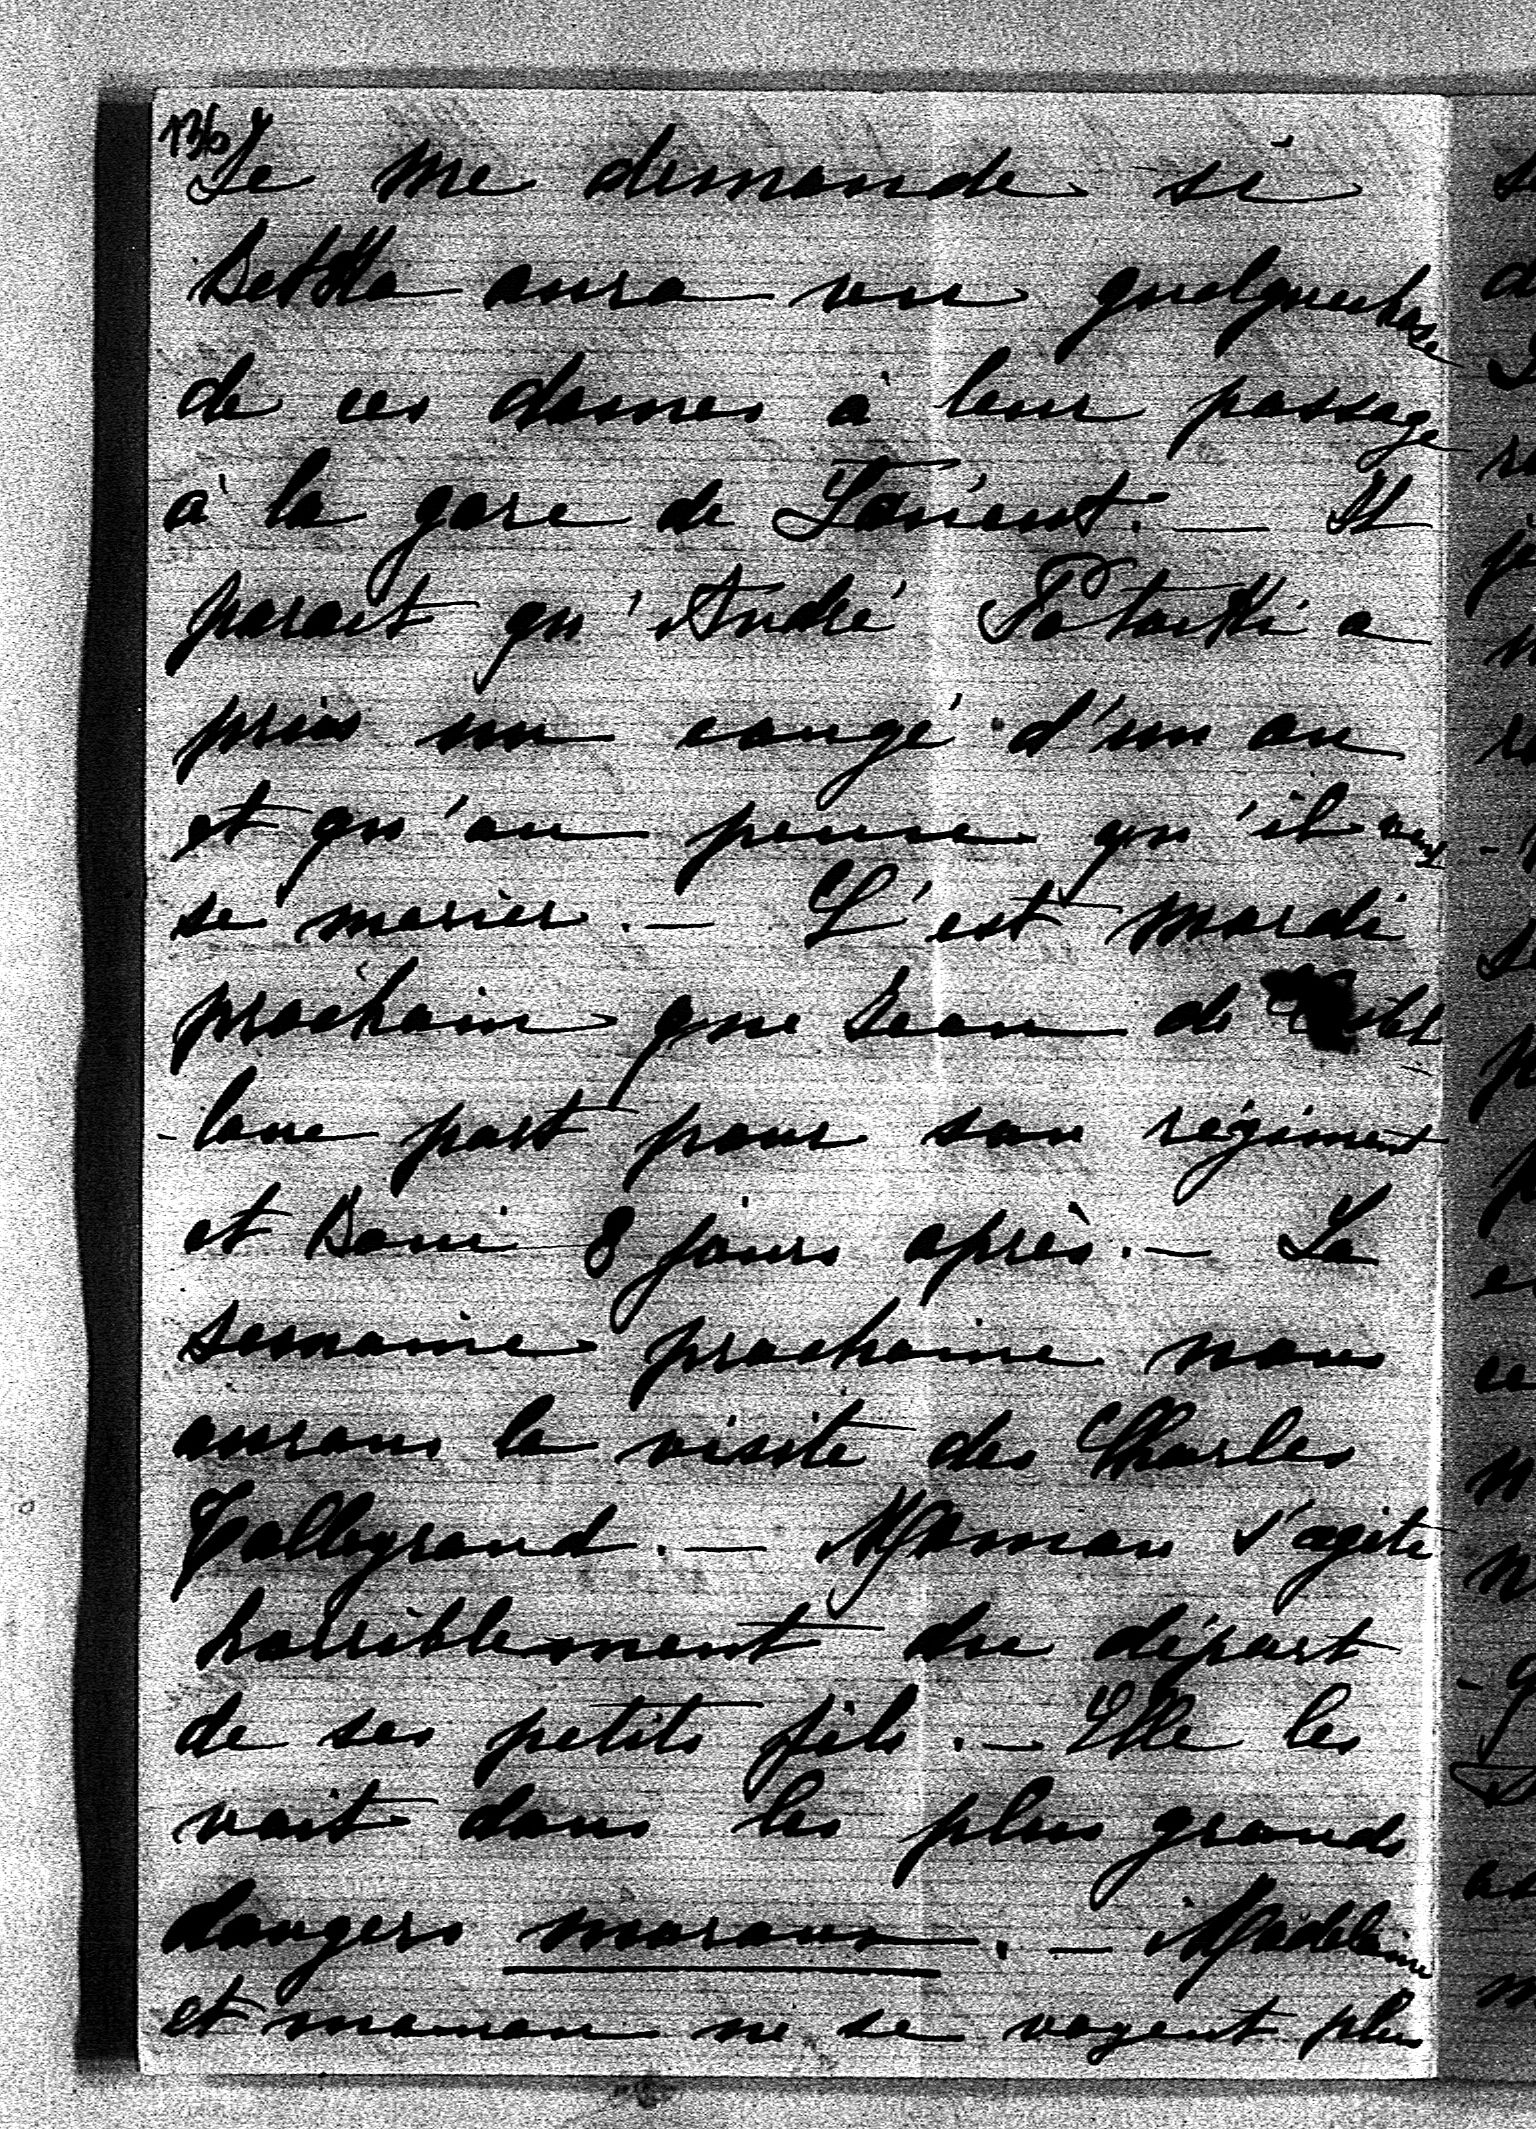 136
Je me demande si
Detha aura vu quelquechose
de ces dames à leur passage
à la gare de Lorient. — Il
parait qu'André Potocki a
pris un congé d'un an
et qu'on pense qu'il veut
se marier. — C'est mardi
prochain que Jean de Castel
-lane part pour son régiment
et Boni 8 jours après. — La
semaine prochaine nous
aurons la visite des Charles
Tallegrand. — Maman s'agite
horriblement du départ
de ses petits fils. — Elle les
voit dans les plus grands
dangers moraux. — Madelaine
et maman ne se voyent plus